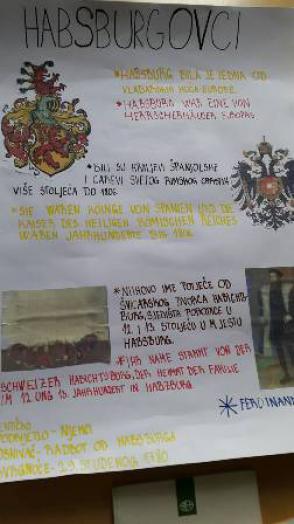 HABSBURGOVCI
*HABSBURG BILA JE JEDNA OD
VLADARSKIH KUĆA EUROPE.
*HABSBURG WAR EINE VON
HERRSCHERHÄUSER EUROPAS
*BILI SU KRALJEVI ŠPANJOLSKE
I CAREVI SVETOG RIMSKOG CARSTVA
VIŠE STOLJEĆA DO 1806
*SIE WAREN KÖINGE VON SPANIEN UND DIE
KAISER DES HEILIGEN RÖMISCHEN REICHES
WAREN JAHRHUNDERTE BIS 1806
*NJIHOVO IME POTJEČE OD
ŠVICARSKOG DVORCA HABICHTS-
BURG, SJEDIŠTA PORODICE U
12. I 13. STOLJEĆU U MJESTU
HABSBURG.
*IHR NAME STAMMT VON DER
SCHWEIZER HABICHTSBURG, DER HEIMAT DER FAMILIE
IM 12 UND 13. JAHRHUNDERT IN HABZBURG
*FERDINAND
PODRIJETLO - NJEMCI
OSNIVAČ - RADBOT OD HABSBURGA
29. STUDENOG 1780